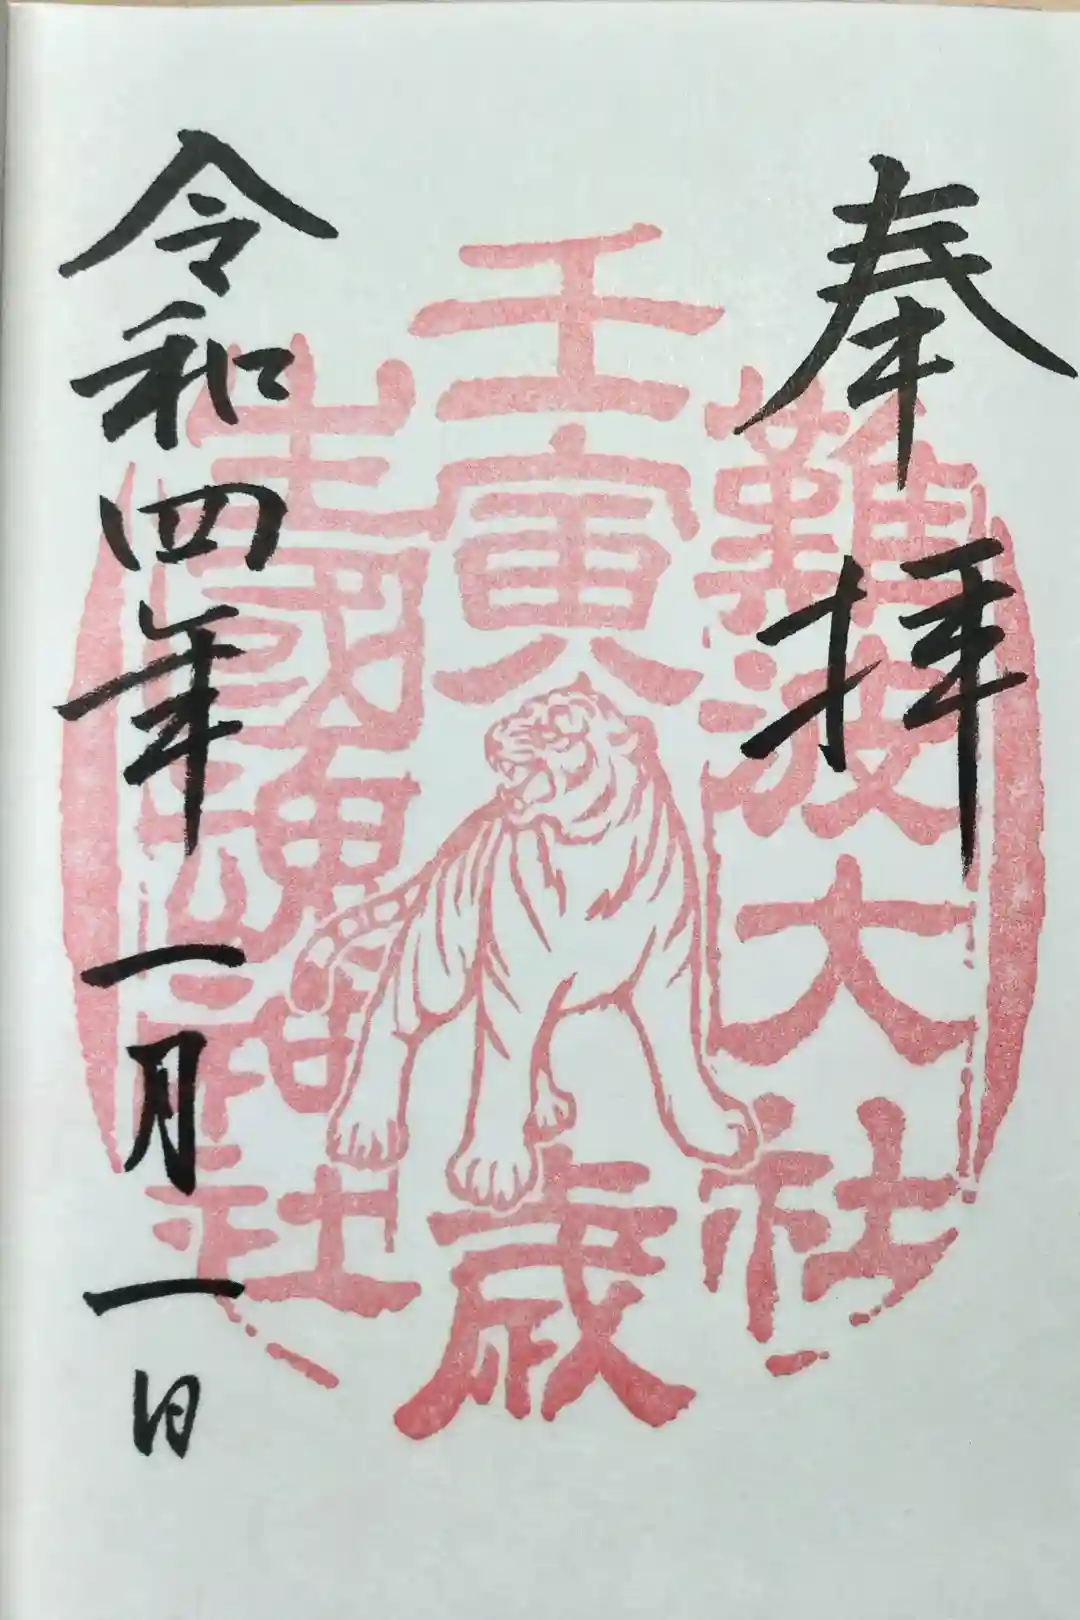 奉拝
難波大社
壬寅
歳
生國魂神社
令和四年一月一日